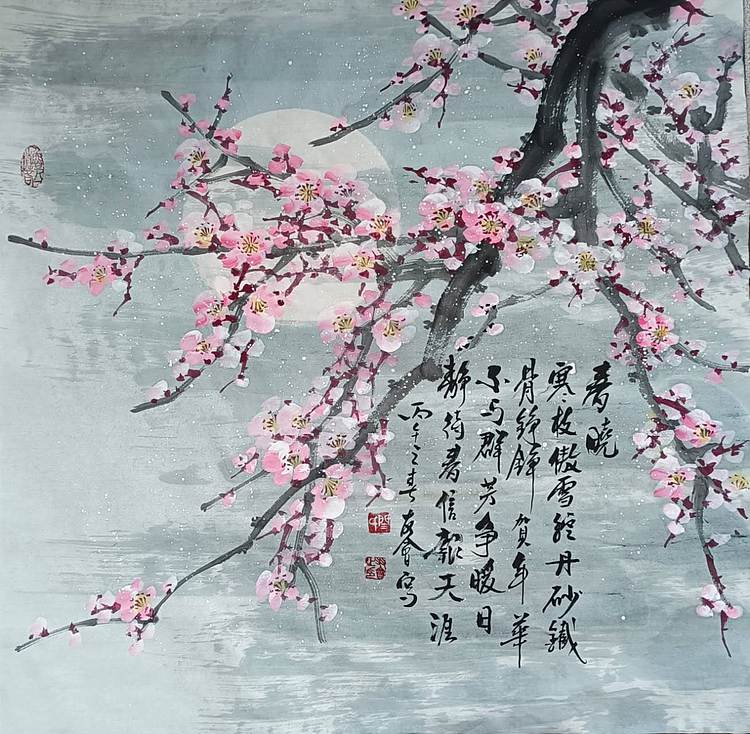 春晓
寒枝傲雪绽丹砂鐵
骨铮铮賀年華
不与群芳争暖日
静待春信天涯
丙午之春友會写